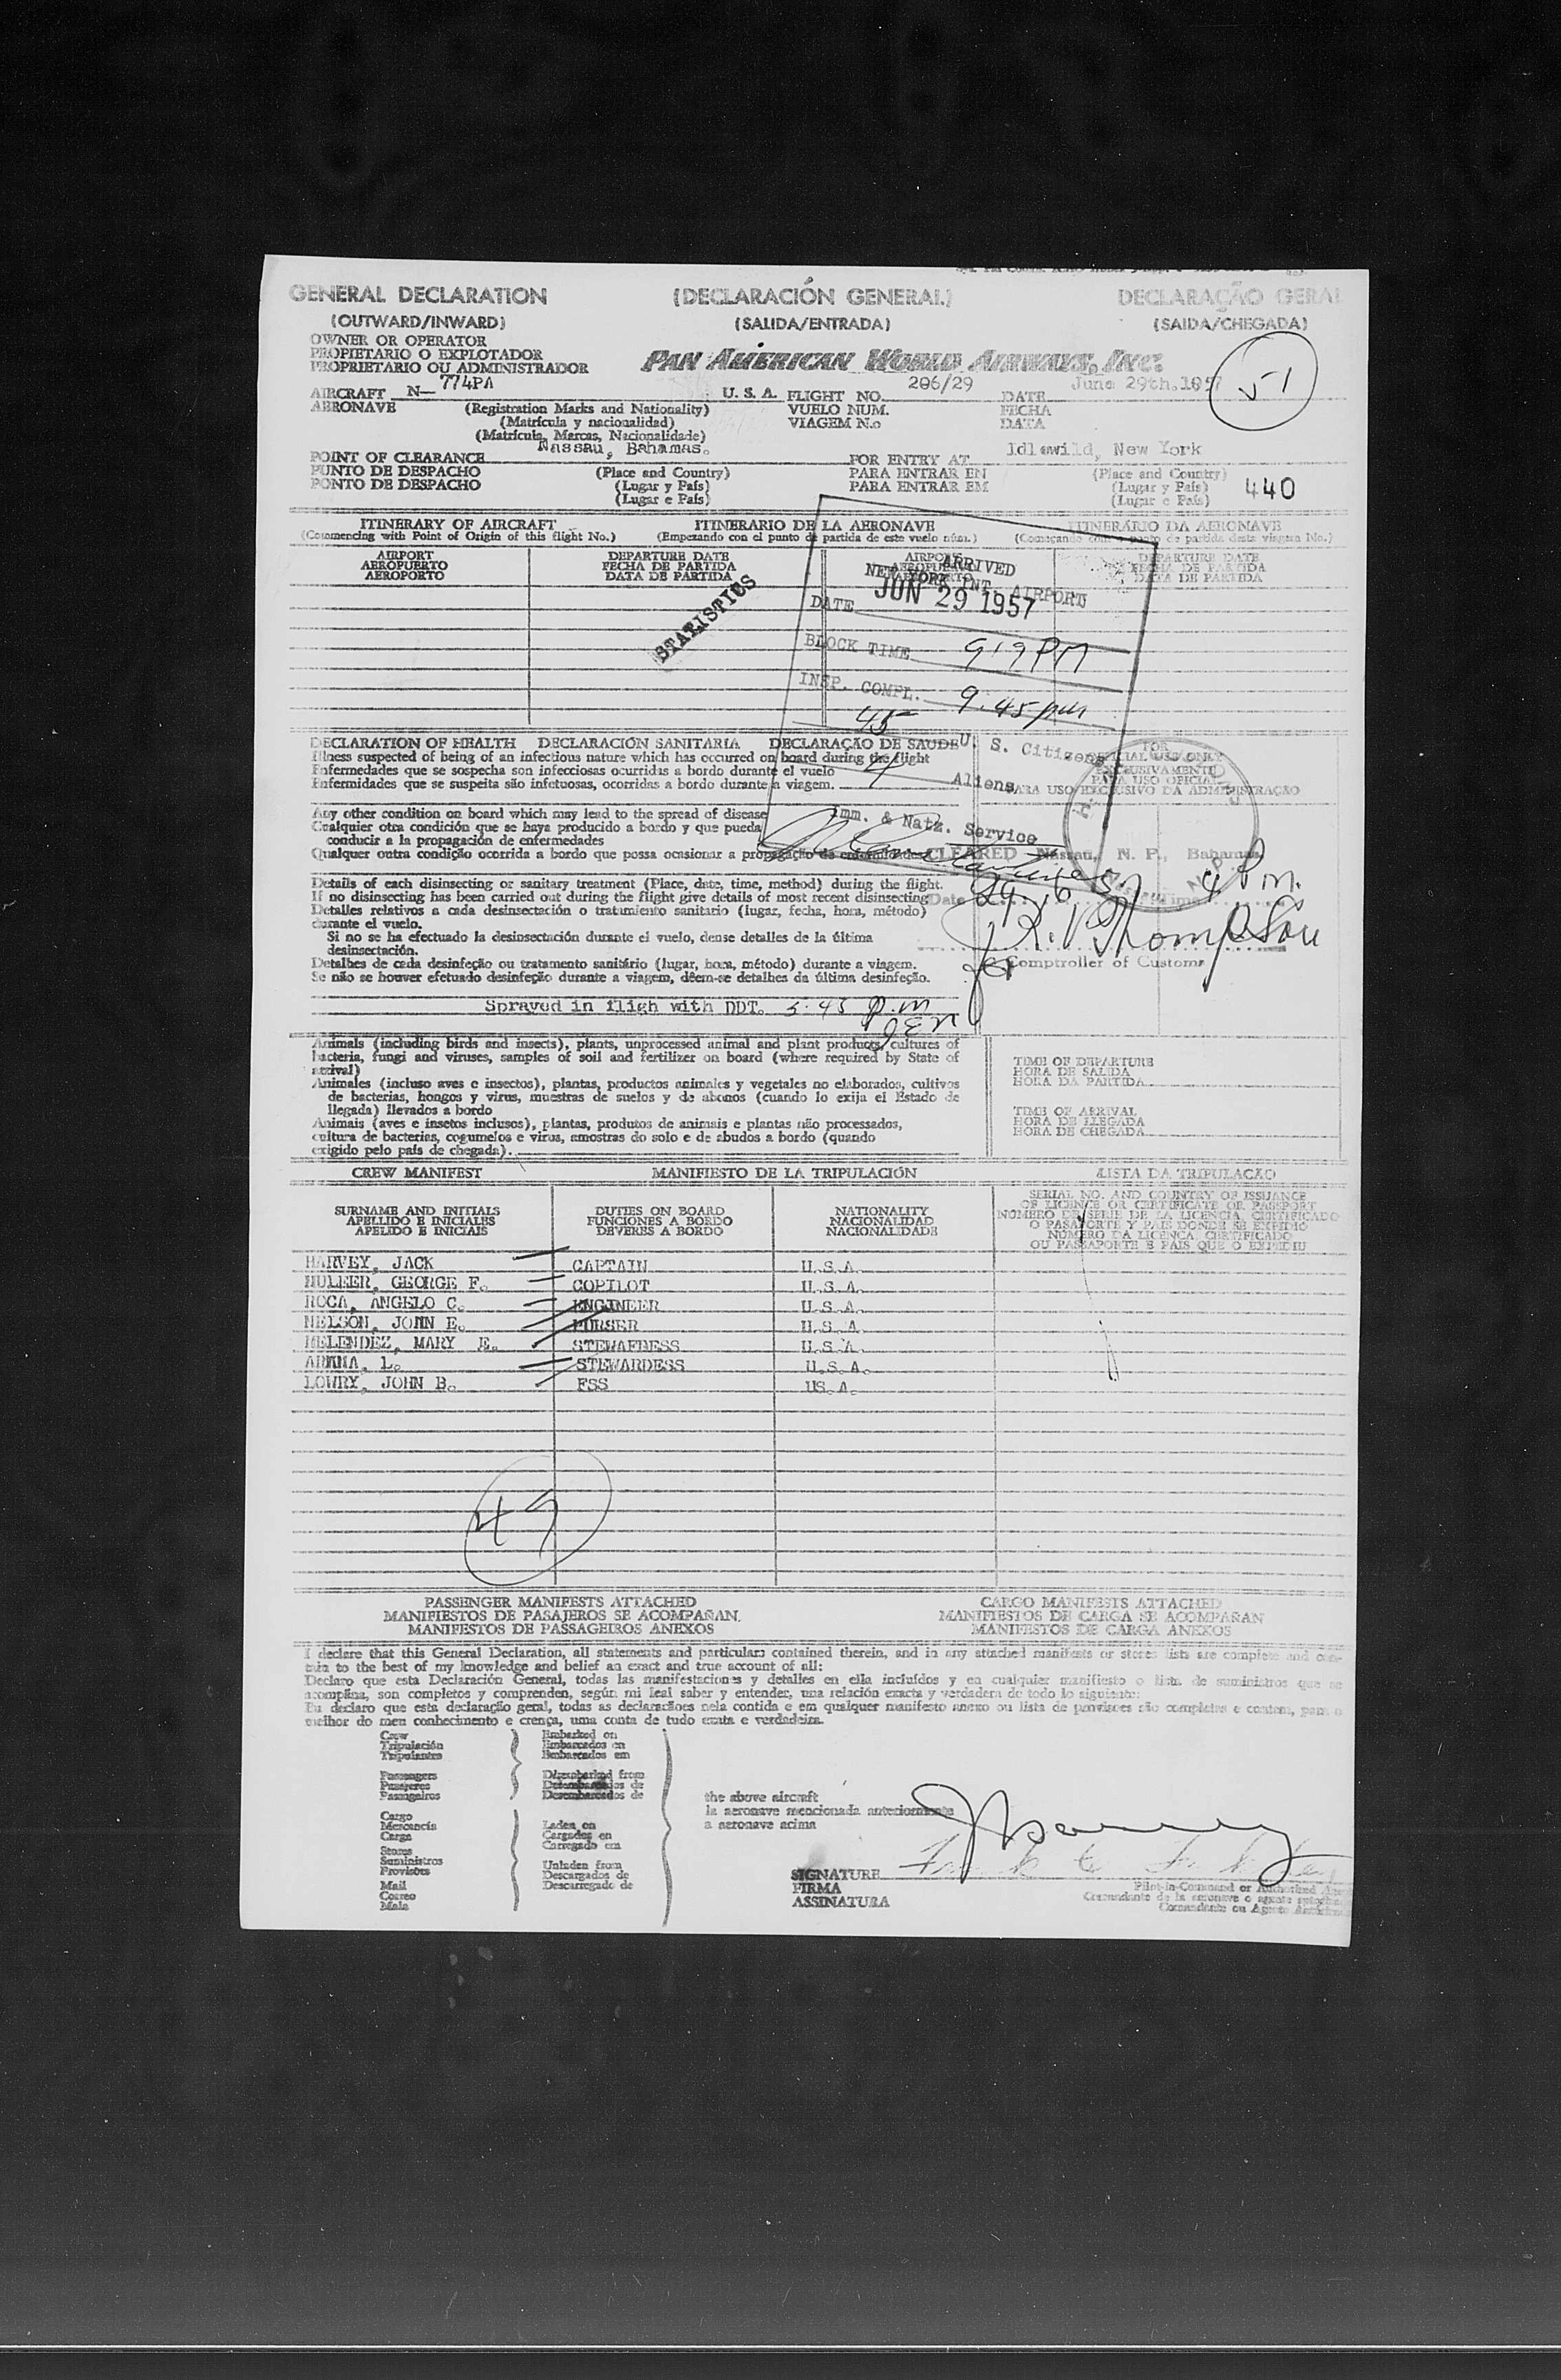 GENERAL DECLARATION (DECLARACIÓN GENERAL) DECLARAÇÃO GERAL
(OUTWARD/INWARD) (SALIDA/ENTRADA) (SAIDA/CHEGADA)
OWNER OR OPERATOR
PROPIETARIO O EXPLOTADOR
PROPRIETARIO OU ADMINISTRADOR
PAN AMERICAN WORLD AIRWAYS, INC.
51
AIRCRAFT N-774PA U. S. A. FLIGHT NO. 206/29 DATE June 29th.1957
AERONAVE (Registration Marks and Nationality) VUELO NUM. FECHA
(Matrícula y nacionalidad) VIAGEM N.o DATA
(Matrícula, Marcas, Nacionalidade)
POINT OF CLEARANCE Nassau, Bahamas. FOR ENTRY AT Idlewild, New York
PUNTO DE DESPACHO (Place and Country) PARA ENTRAR EN (Place and Country)
PONTO DE DESPACHO (Lugar y País) PARA ENTRAR EM (Lugar y País) 440
(Lugar e País) (Lugar e País)
ITINERARY OF AIRCRAFT ITINERARIO DE LA AERONAVE ITINERÁRIO DA AERONAVE
(Commencing with Point of Origin of this flight No.) (Empezando con el punto de partida de este vuelo núm.) (Começando com o punto de partida deste viagem No.)
AIRPORT DEPARTURE DATE AIRPORT DEPARTURE DATE
AEROPUERTO FECHA DE PARTIDA AEROPUERTO FECHA DE PARTIDA
AEROPORTO DATA DE PARTIDA AEROPORTO DATA DE PARTIDA
STATISTICS
ARRIVED
NEW YORK INT. AIRPORT
DATE JUN 29 1957
BLOCK TIME 919 PM
INSP. COMPL. 9.45 pm
45 U. S. Citizens
4 Aliens
Imm. & Natz. Service
DECLARATION OF HEALTH DECLARACIÓN SANITARIA DECLARAÇÃO DE SAUDE
Illness suspected of being of an infectious nature which has occurred on board during the flight
Enfermedades que se sospecha son infecciosas ocurridas a bordo durante el vuelo
Enfermidades que se suspeita são infetuosas, ocorridas a bordo durante a viagem.
FOR
OFFICIAL USE ONLY
EXCLUSIVAMENTE
PARA USO OFICIAL
PARA USO EXCLUSIVO DA ADMINISTRAÇÃO
Any other condition on board which may lead to the spread of disease
Cualquier otra condición que se haya producido a bordo y que pueda
conducir a la propagación de enfermedades
Qualquer outra condição ocorrida a bordo que possa ocasionar a propagação de enfermidades
CLEARED Nassau, N. P., Bahamas
Date 29. 6. 57 Time 4 Pm.
J.R. Thompson
for Comptroller of Customs
Details of each disinsecting or sanitary treatment (Place, date, time, method) during the flight.
If no disinsecting has been carried out during the flight give details of most recent disinsecting
Detalles relativos a cada desinsectación o tratamiento sanitario (lugar, fecha, hora, método)
durante el vuelo.
Si no se ha efectuado la desinsectación durante el vuelo, dense detalles de la última
desinsectación.
Detalhes de cada desinfeção ou tratamento sanitário (lugar, hora, método) durante a viagem.
Se não se houver efetuado desinfeção durante a viagem, dêem-se detalhes da última desinfeção.
Sprayed in fligh with DDT. 5.45 p.m
JEN
Animals (including birds and insects), plants, unprocessed animal and plant products, cultures of
bacteria, fungi and viruses, samples of soil and fertilizer on board (where required by State of
arrival)
Animales (incluso aves e insectos), plantas, productos animales y vegetales no elaborados, cultivos
de bacterias, hongos y virus, muestras de suelos y de abonos (cuando lo exija el Estado de
llegada) llevados a bordo
Animais (aves e insetos inclusos), plantas, produtos de animais e plantas não processados,
cultura de bacterias, cogumelos e virus, amostras do solo e de abudos a bordo (quando
exigido pelo país de chegada).
TIME OF DEPARTURE
HORA DE SALIDA
HORA DA PARTIDA
TIME OF ARRIVAL
HORA DE LLEGADA
HORA DE CHEGADA
CREW MANIFEST MANIFIESTO DE LA TRIPULACIÓN LISTA DA TRIPULAÇAO
SURNAME AND INITIALS DUTIES ON BOARD NATIONALITY
APELLIDO E INICIALES FUNCIONES A BORDO NACIONALIDAD
APELIDO E INICIAIS DEVERES A BORDO NACIONALIDADE
SERIAL NO. AND COUNTRY OF ISSUANCE
OF LICENCE OR CERTIFICATE OR PASSPORT
NÚMERO DE SERIE DE LA LICENCIA, CERTIFICADO
O PASAPORTE Y PAIS DONDE SE EXPIDIÓ
NÚMERO DA LICENCA, CERTIFICADO
OU PASSAPORTE E PAIS QUE O EXPEDIU
HARVEY, JACK CAPTAIN U.S.A.
HULEER, GEORGE F. COPILOT U.S.A.
ROCA, ANGELO C. ENGINEER U.S.A.
NELSON, JOHN E. PURSER U.S.A.
MELENDEZ, MARY E. STEWAFDESS U.S.A.
L. STEWARDESS U.S.A.
LOWRY, JOHN B. FSS US.A.
49
PASSENGER MANIFESTS ATTACHED CARGO MANIFESTS ATTACHED
MANIFIESTOS DE PASAJEROS SE ACOMPAÑAN. MANIFIESTOS DE CARGA SE ACOMPAÑAN
MANIFESTOS DE PASSAGEIROS ANEXOS MANIFESTOS DE CARGA ANEXOS
I declare that this General Declaration, all statements and particulars contained therein, and in any attached manifests or stores lists are complete and con-
tain to the best of my knowledge and belief an exact and true account of all:
Declaro que esta Declaración General, todas las manifestaciones y detalles en ella incluídos y en cualquier manifiesto o lista de suministros que se
acompaña, son completos y comprenden, según mi leal saber y entender, una relación exacta y verdadera de todo lo siguiente:
Eu declaro que esta declaração geral, todas as declarações nela contida e em qualquer manifesto anexo ou lista de provisoes são completas e contem, para o
melhor do meu conhecimento e crença, uma conta de tudo exata e verdadeira.
Crew Embarked on
Tripulación Embarcados en
Tripulantes Embarcados em
Passengers Disembarked from
Pasajeros Desembarcados de
Passageiros Desembarcados de
the above aircraft
la aeronave mencionada anteriormente
a aeronave acima
Cargo Laden on
Mercancía Cargados en
Carga Carregado em
Stores
Suministros Unladen from
Provisões Descargados de
Mail Descarregado de
Correo
Mala
SIGNATURE
FIRMA
ASSINATURA
Pilot-in-Command or Authorized
Comandante de la aeronave o agente
Comandante ou Agente